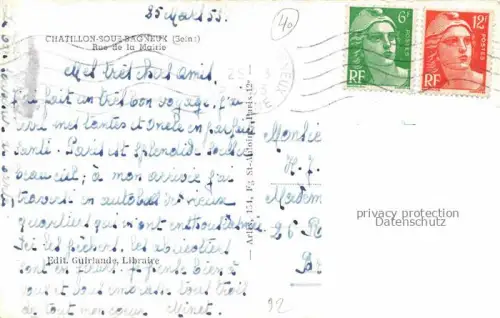 25 Mars 53.
40
CHATILLON-SOUS-BAGNEUX (Seine)
Rue de la Mairie
6F
12F
RF
RF
Mes très chers amis
J'ai fait un très bon voyage, j'ai
mes tantes et Oncle en parfaite
santé. Paris est splendide
beau ciel; à mon arrivée j'ai
travers en autobus vieux
quartiers qui m'ont enthousiasmée
Ici les pêchers, les abricotiers
sont en fleurs. Je pense bien à
vous et vous embrasse tous trois
de tout mon cœur Minet
Edit. Guirlande, Libraire
154, Fg St-Antoine, Paris-12e
Monsieur
H. J.
Madem
26 R
privacy protection
Datenschutz
92